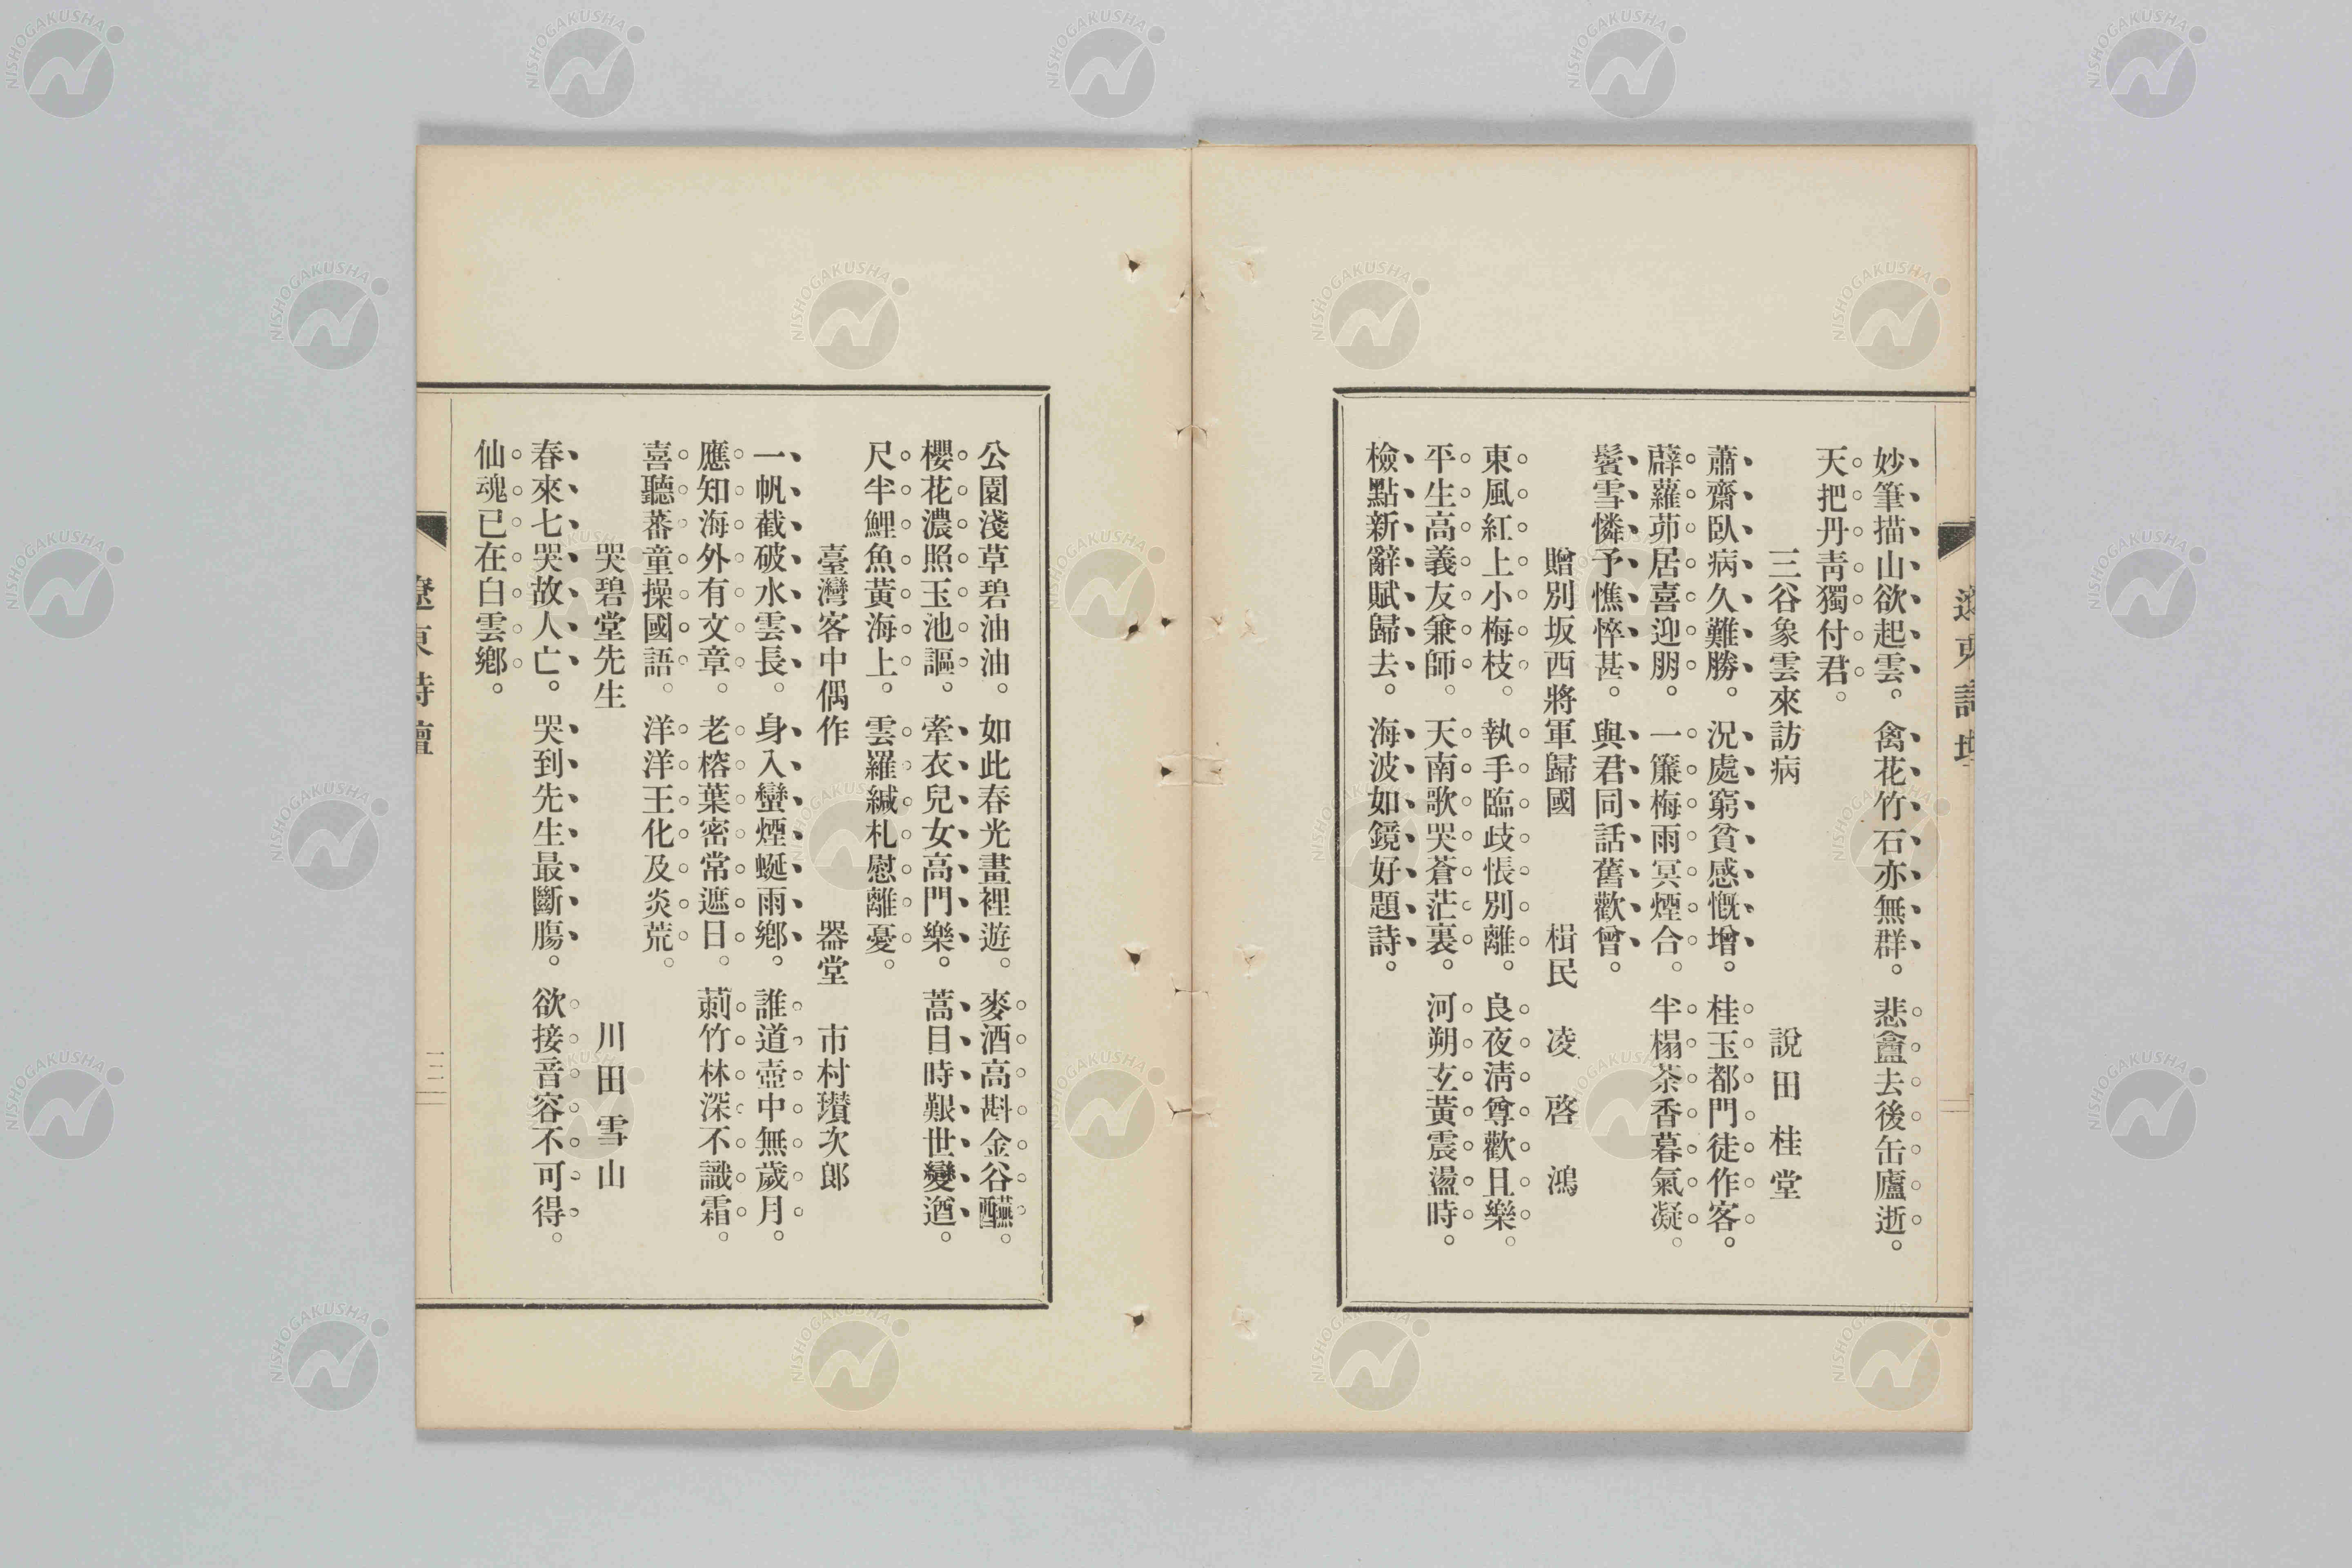 妙筆描山欲起雲。禽花竹石亦無群。悲盦去後缶廬逝。
天把丹靑獨付君。
三谷象雲來訪病　說田桂堂
蕭齋臥病久難勝。況處窮貧感慨增。桂玉都門徒作客。
薜蘿茆居喜迎朋。一簾梅雨冥煙合。半榻茶香暮氣凝。
鬢雪憐予憔悴甚。與君同話舊歡曾。
贈別坂西將軍歸國　楫民　凌啓鴻
東風紅上小梅枝。執手臨歧悵別離。良夜淸尊歡且樂。
平生高義友兼師。天南歌哭蒼茫裏。河朔玄黃震盪時。
檢點新辭賦歸去。海波如鏡好題詩。
公園淺草碧油油。如此春光畫裡遊。麥酒高斟金谷醼。
櫻花濃照玉池謳。牽衣兒女高門樂。蒿目時艱世變遒。
尺半鯉魚黃海上。雲羅緘札慰離憂。
臺灣客中偶作　器堂　市村瓚次郎
一帆截破水雲長。身入蠻煙蜒雨鄕。誰道壺中無歲月。
應知海外有文章。老榕葉密常遮日。莿竹林深不識霜。
喜聽蕃童操國語。洋洋王化及炎荒。
哭碧堂先生　川田雪山
春來七哭故人亡。哭到先生最斷腸。欲接音容不可得。
仙魂已在白雲鄕。
遼東詩壇
NISHOGAKUSHA